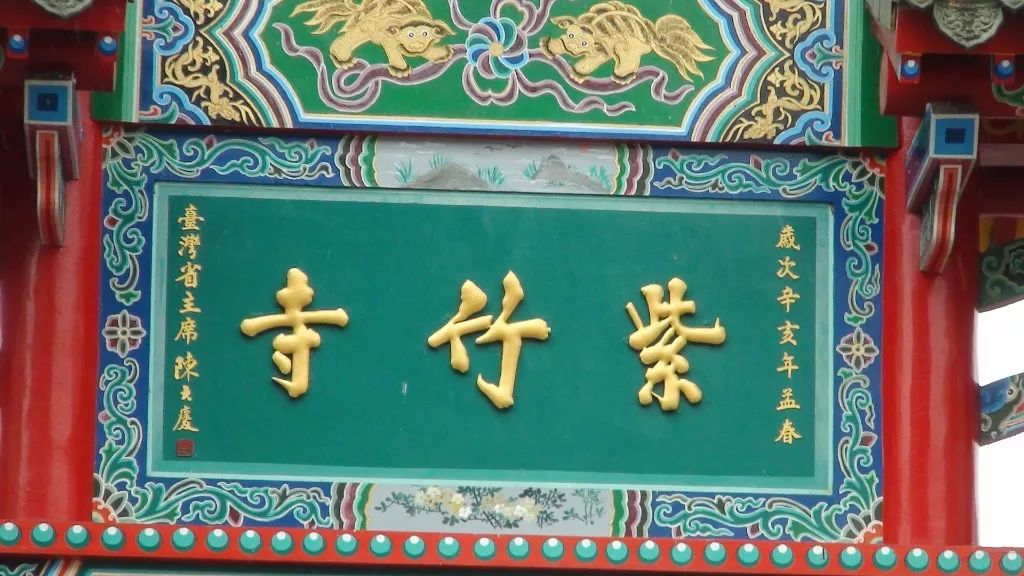 歲次辛亥年孟春
紫竹寺
臺灣省主席陳大慶